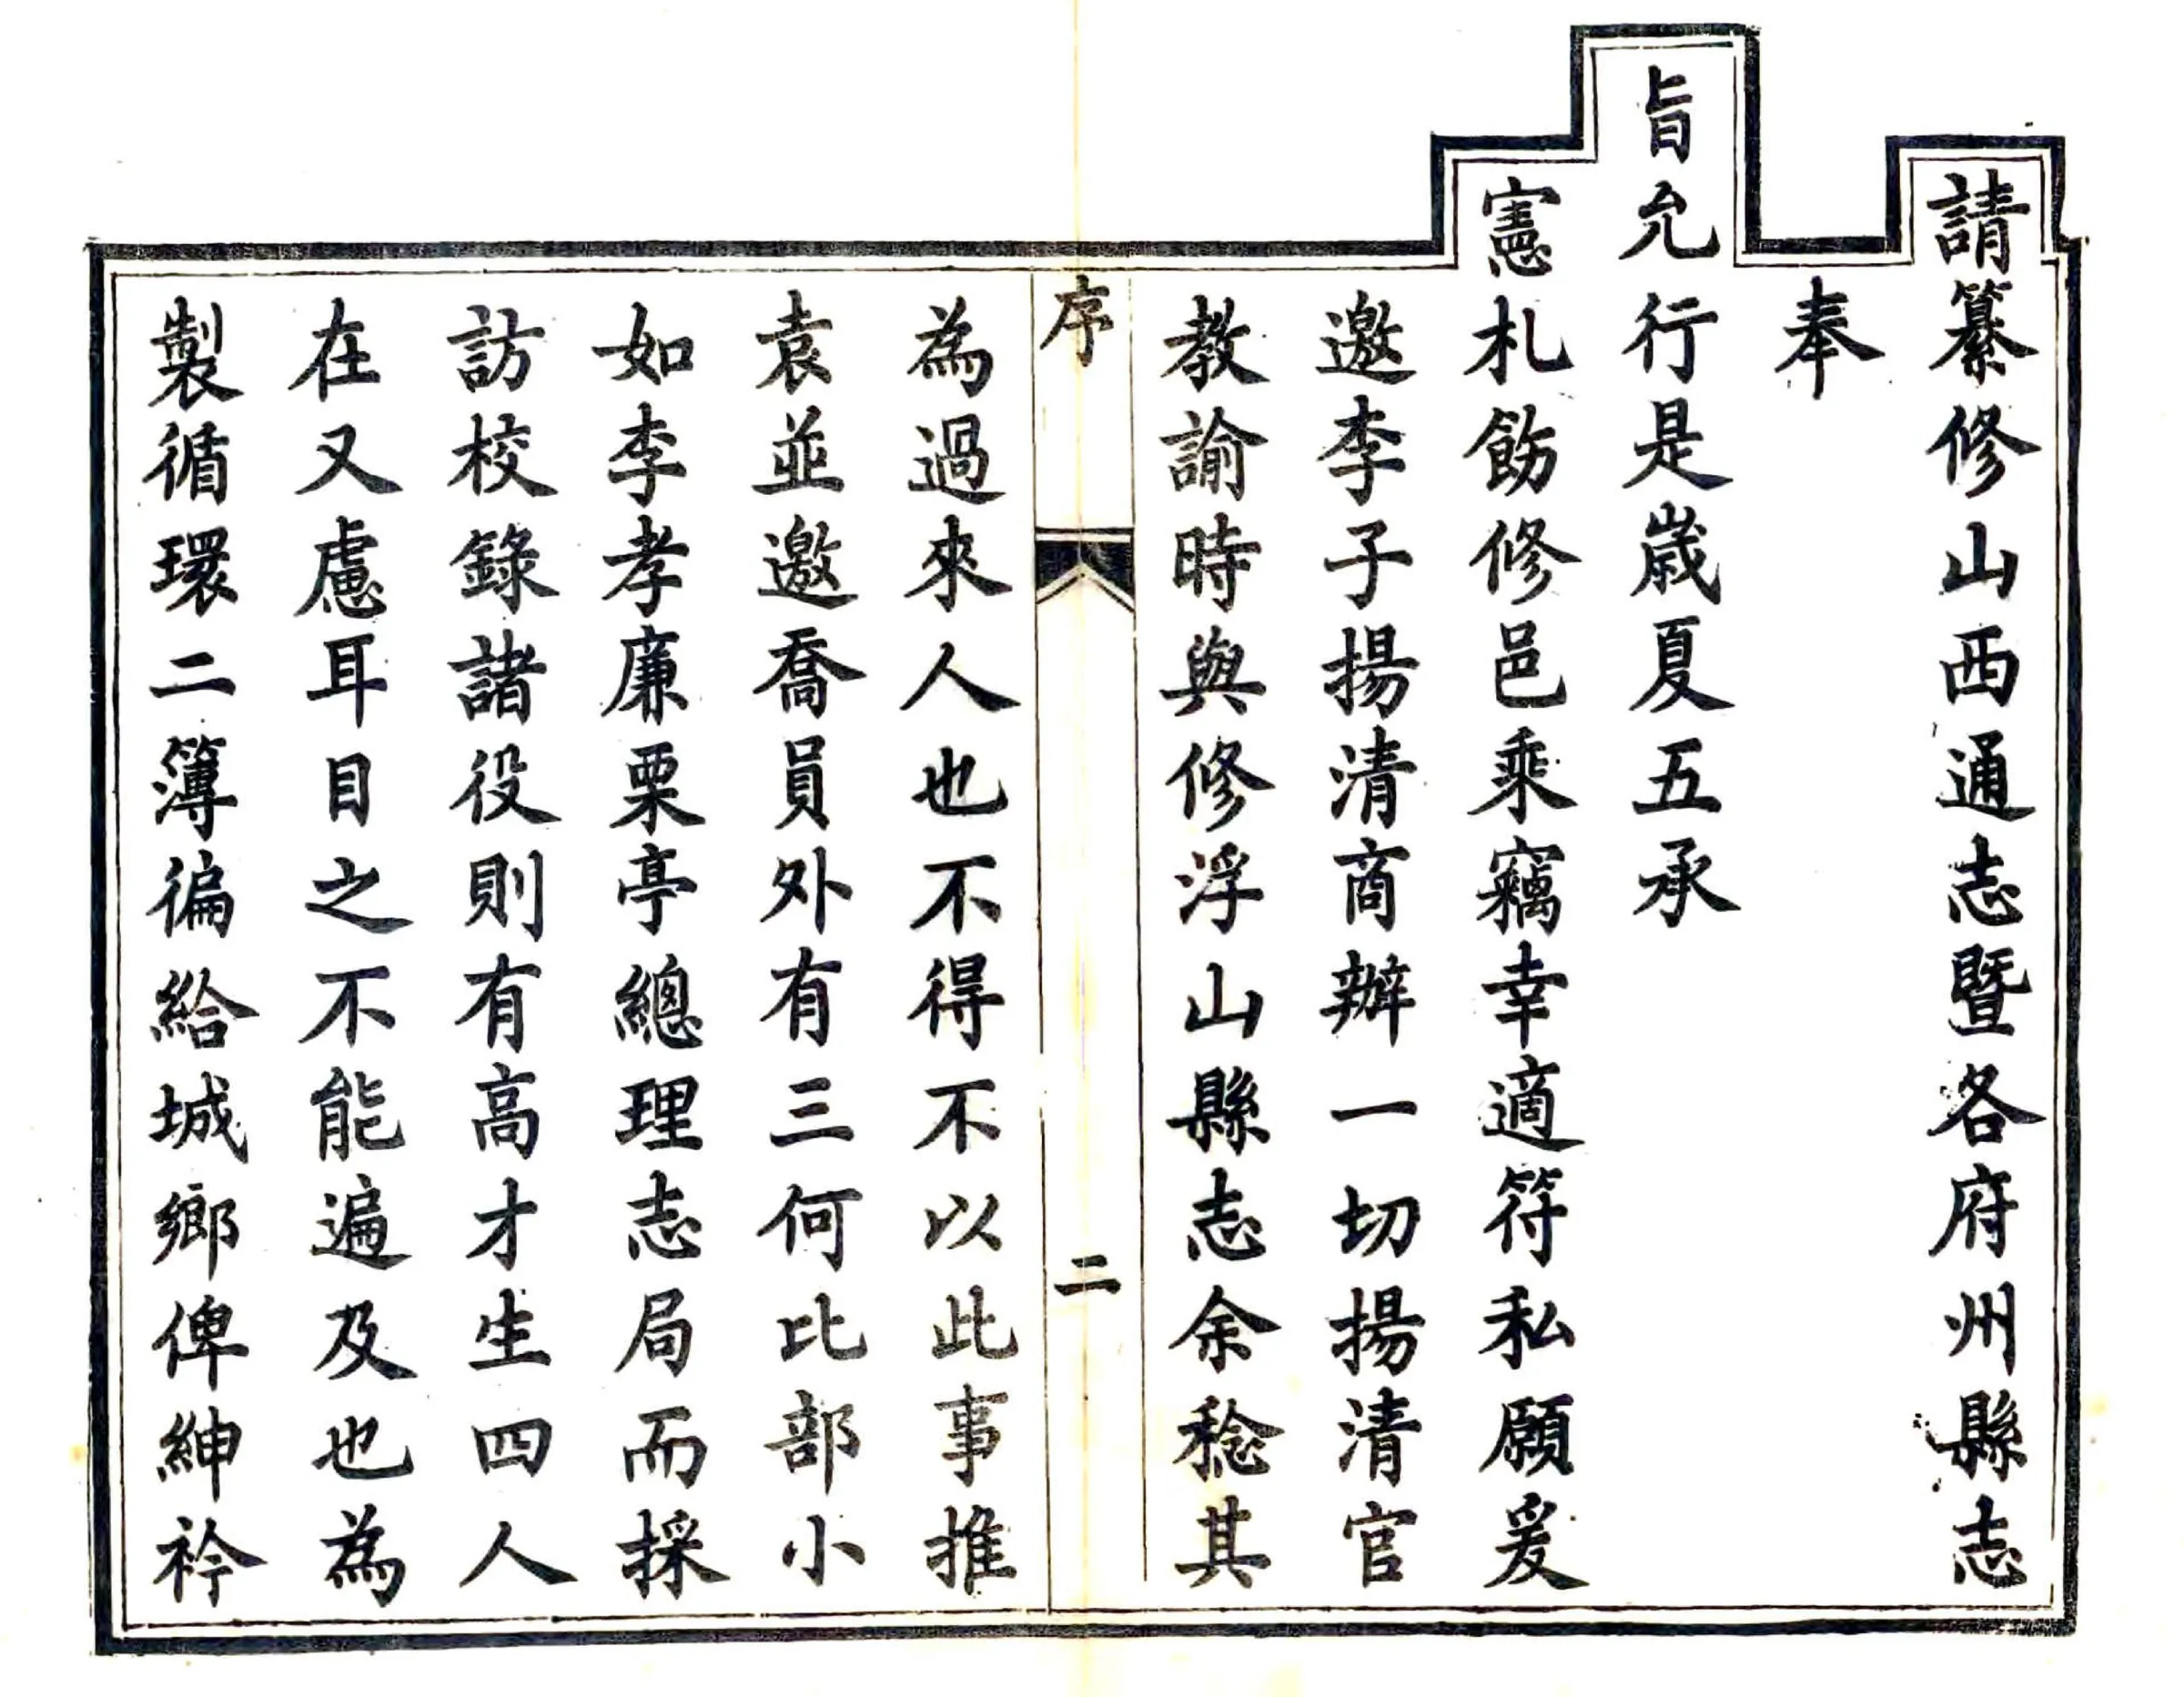 請纂修山西通志暨各府州縣志
奉
旨允行是歲夏五承
憲札飭修邑乘竊幸適符私願爰
邀李子揚清商辦一切揚清官
教諭時與修浮山縣志余稔其
序
二
為過來人也不得不以此事推
袁並邀喬員外有三何比部小
如李孝廉栗亭總理志局而採
訪校錄諸役則有高才生四人
在又慮耳目之不能遍及也為
製循環二簿徧給城鄉俾紳衿